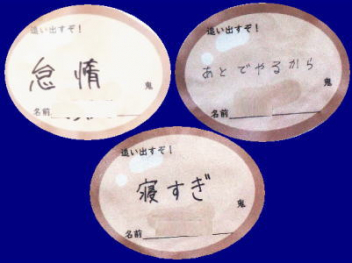 追い出すぞ!
怠惰
鬼
名前
追い出すぞ!
あとでやるから
鬼
名前
追い出すぞ!
寝すぎ
鬼
名前